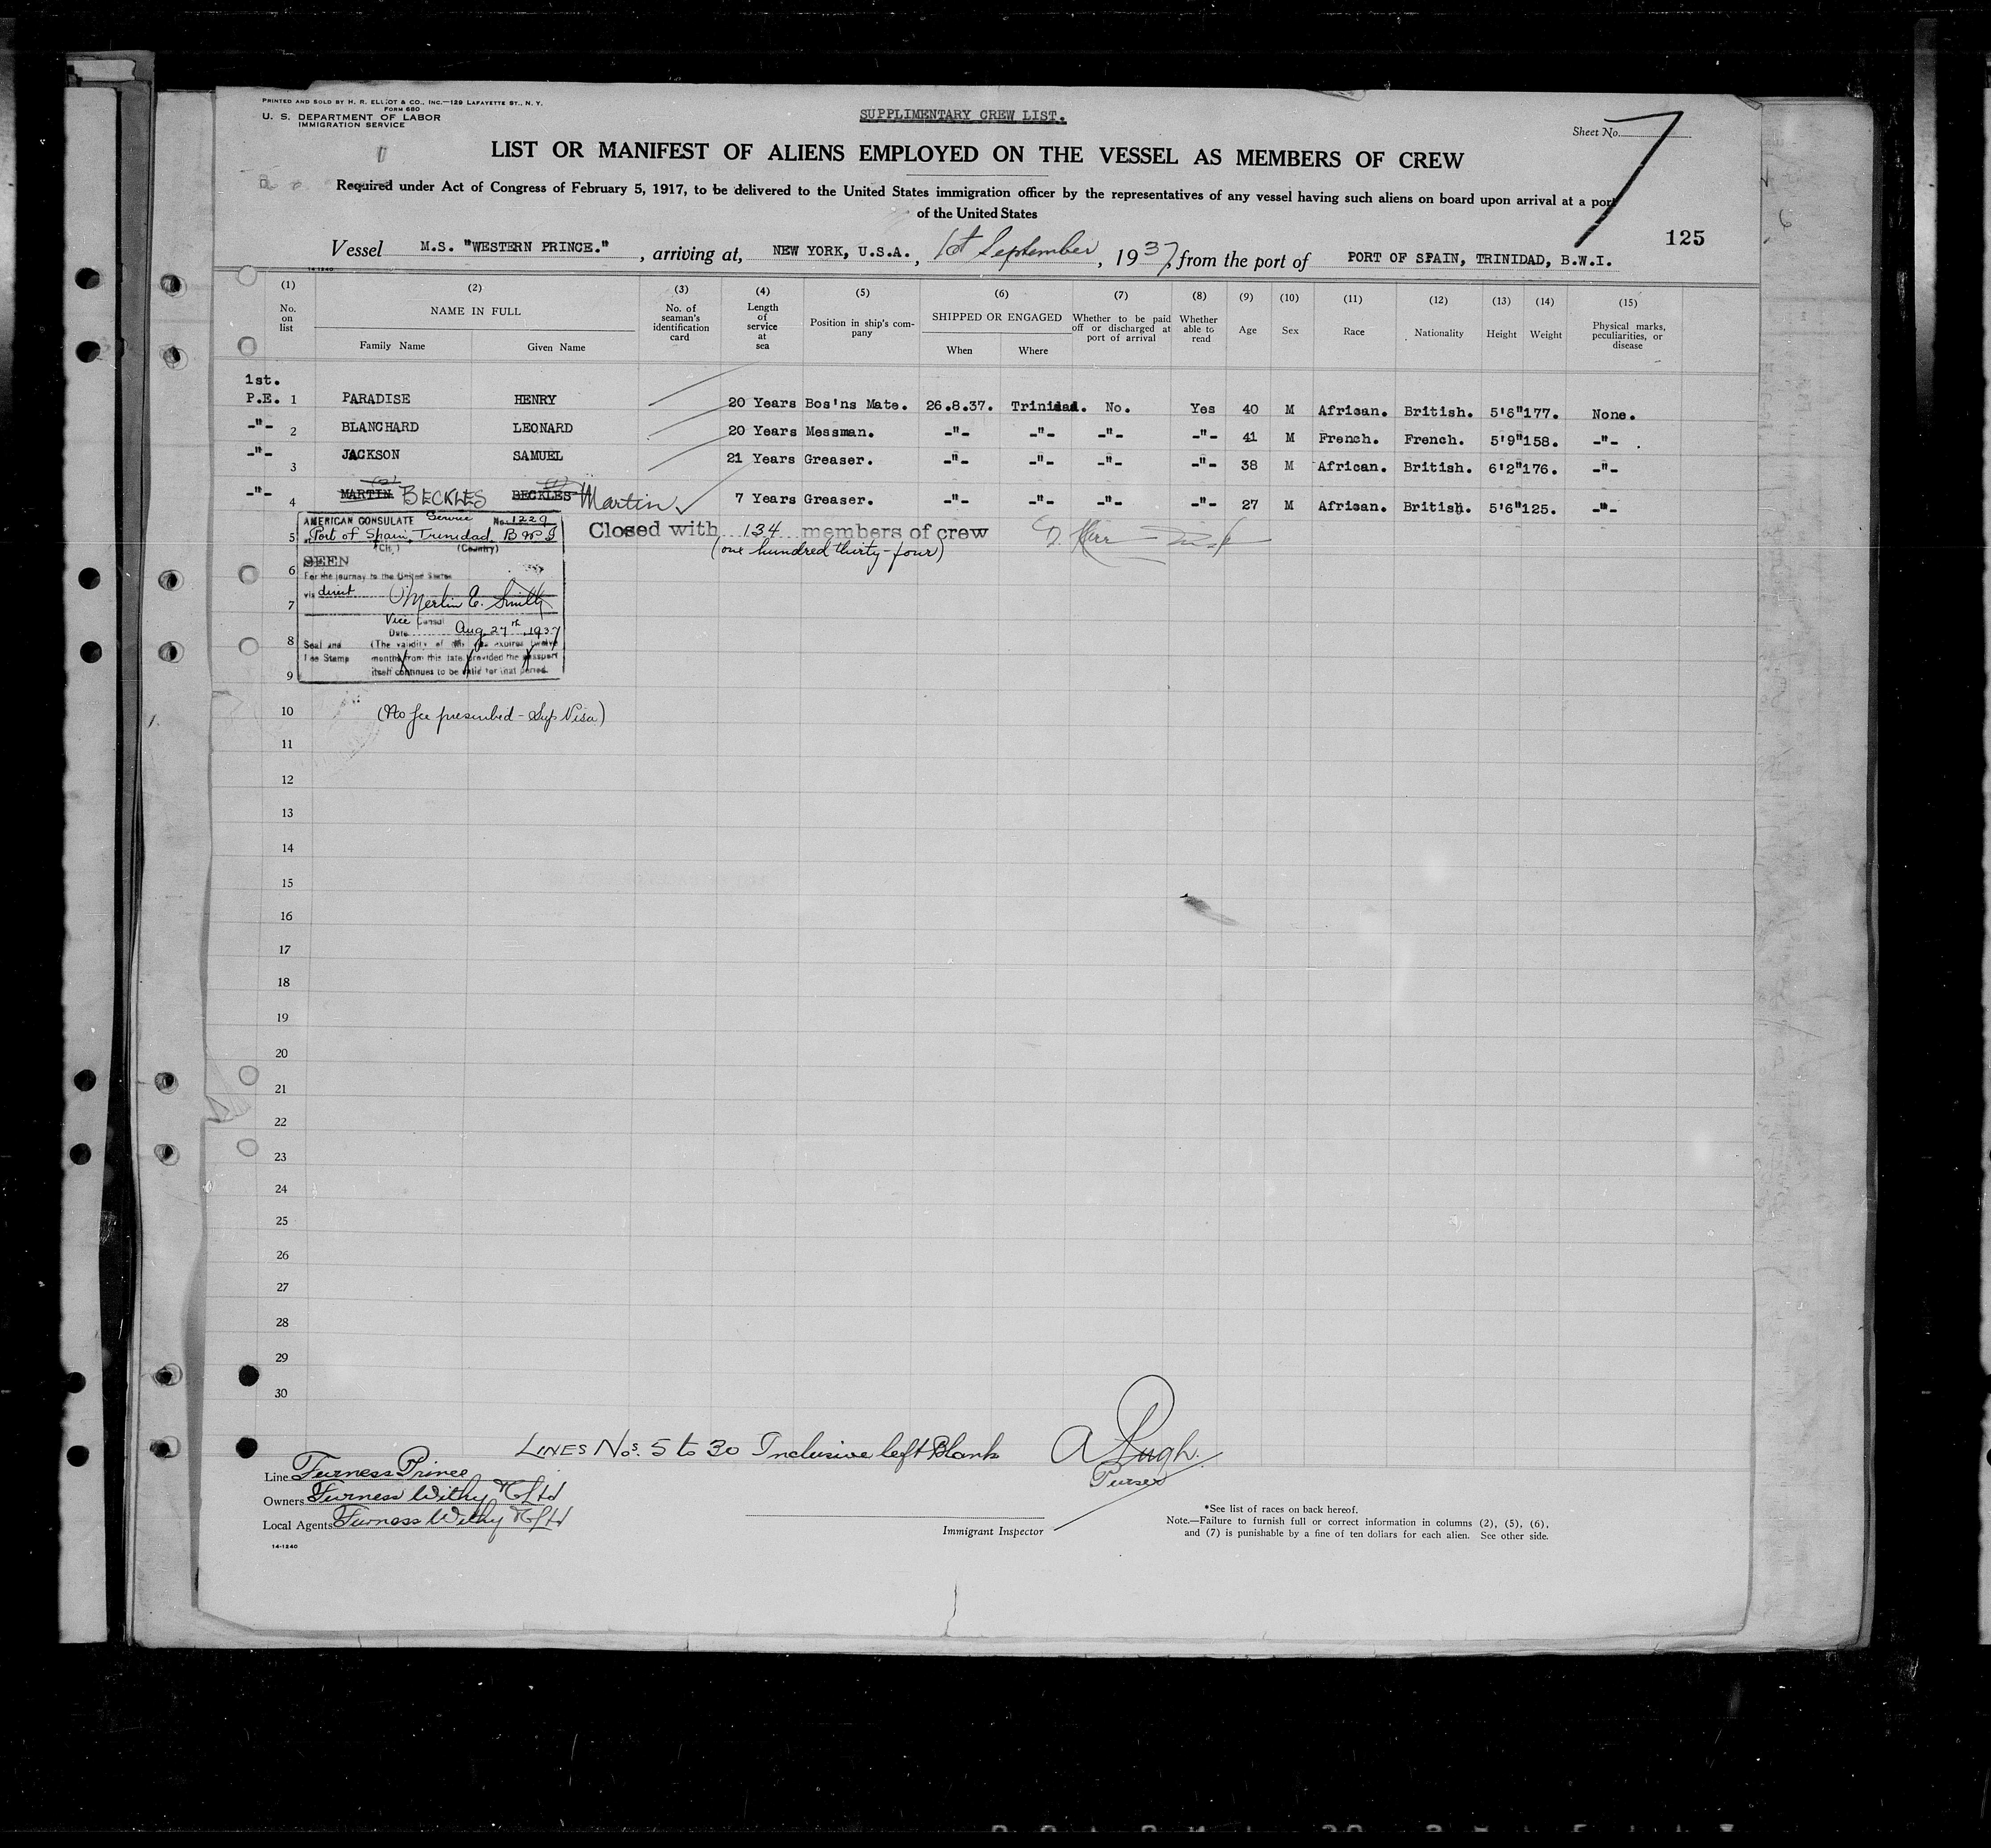 PRINTED AND SOLD BY H. R. ELLIOT & CO., INC.—129 LAFAYETTE ST., N. Y.
FORM 680
U. S. DEPARTMENT OF LABOR
IMMIGRATION SERVICE
SUPPLIMENTARY CREW LIST.
Sheet No. 7
LIST OR MANIFEST OF ALIENS EMPLOYED ON THE VESSEL AS MEMBERS OF CREW
Required under Act of Congress of February 5, 1917, to be delivered to the United States immigration officer by the representatives of any vessel having such aliens on board upon arrival at a port
of the United States
125
Vessel M.S. "WESTERN PRINCE.", arriving at, NEW YORK, U.S.A., 1st September, 1937, from the port of PORT OF SPAIN, TRINIDAD, B.W.I.
14-1240
(1) (2) (3) (4) (5) (6) (7) (8) (9) (10) (11) (12) (13) (14) (15)
No. on list NAME IN FULL Family Name Given Name No. of seaman's identification card Length of service at sea Position in ship's company SHIPPED OR ENGAGED When Where Whether to be paid off or discharged at port of arrival Whether able to read Age Sex Race Nationality Height Weight Physical marks, peculiarities, or disease
1st.
P.E. 1 PARADISE HENRY 20 Years Bos'ns Mate. 26.8.37. Trinidad. No. Yes 40 M African. British. 5'6" 177. None.
-"- 2 BLANCHARD LEONARD 20 Years Messman. -"- -"- -"- -"- 41 M French. French. 5'9" 158. -"-
-"- 3 JACKSON SAMUEL 21 Years Greaser. -"- -"- -"- -"- 38 M African. British. 6'2" 176. -"-
-"- 4 MARTIN BECKLES BECKLES Martin 7 Years Greaser. -"- -"- -"- -"- 27 M African. British. 5'6" 125. -"-
AMERICAN CONSULATE Service No. 1229
5 Port of Spain, Trinidad B W I
(City) (Country)
Closed with 134 members of crew
(one hundred thirty-four)
SEEN
6
For the journey to the United States
via direct
Merlin E. Smith
7
Vice Consul
Date Aug. 27th, 1937
8
Seal and Fee Stamp
(The validity of this visa expires twelve
months from this date provided the passport
itself continues to be valid for that period.
9
10 (No fee prescribed - Sup Visa)
11
12
13
14
15
16
17
18
19
20
21
22
23
24
25
26
27
28
29
30
LINES Nos. 5 to 30 Inclusive left Blank
A Pugh.
Purser
Line Furness Prince
Owners Furness Withy & Co Ltd
Local Agents Furness Withy & Co Ltd
14-1240
Immigrant Inspector
*See list of races on back hereof.
Note.—Failure to furnish full or correct information in columns (2), (5), (6),
and (7) is punishable by a fine of ten dollars for each alien. See other side.